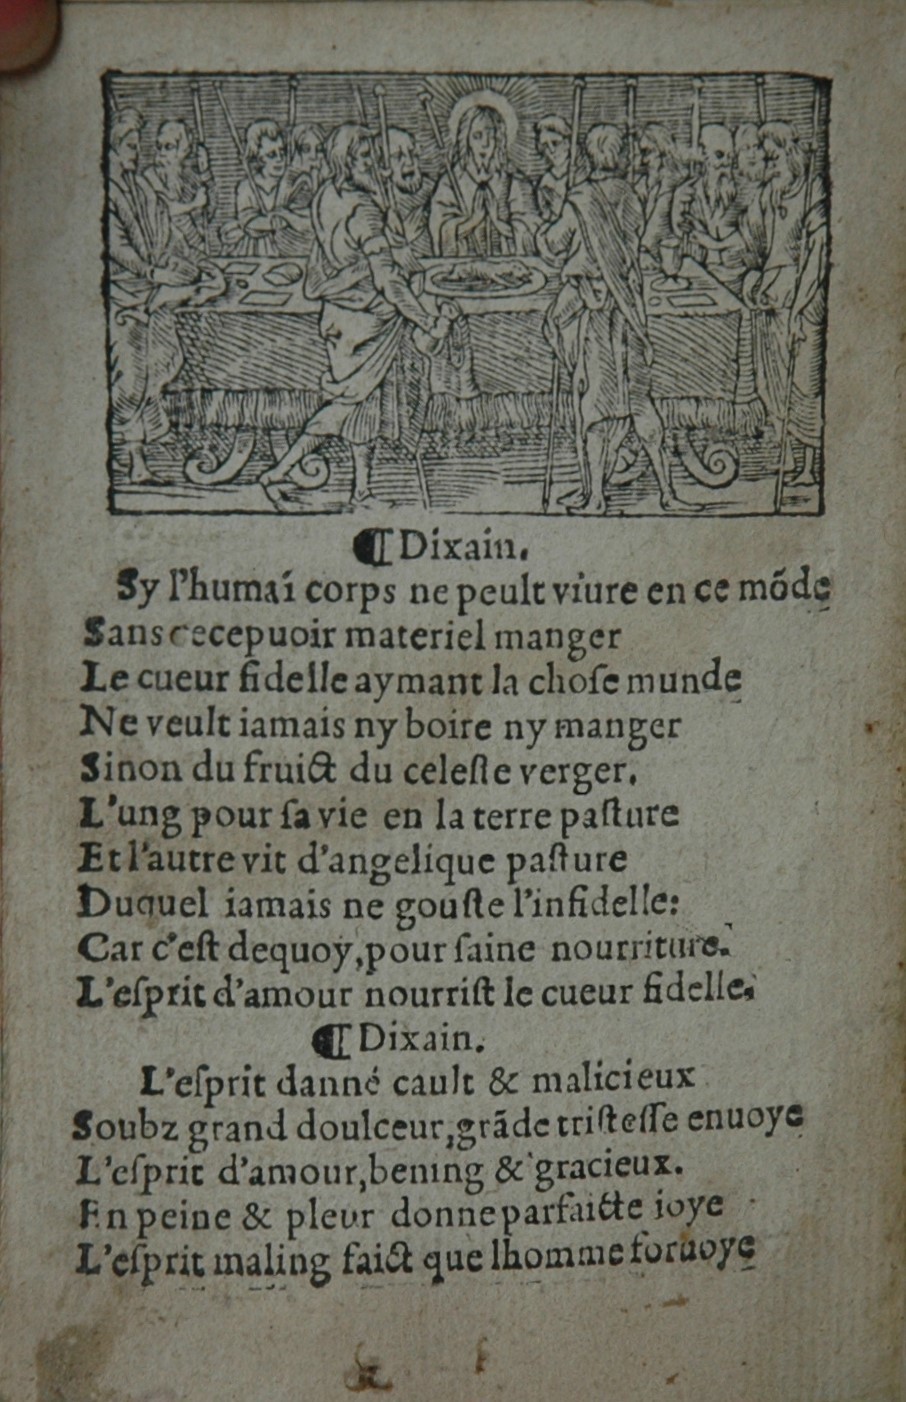 ¶ Dixain.
Sy l'humaí corps ne peult viure en ce mõde
Sans recepuoir materiel manger
Le cueur fidelle aymant la choſe munde
Ne veult iamais ny boire ny manger
Sinon du fruict du celeſte verger.
L'ung pour ſa vie en la terre paſture
Et l'autre vit d'angelique paſture
Duquel iamais ne gouſte l'infidelle:
Car c'eſt dequoy, pour ſaine nourriture.
L'eſprit d'amour nourriſt le cueur fidelle.
¶ Dixain.
L'eſprit danné cault & malicieux
Soubz grand doulceur, grãde triſteſſe enuoye
L'eſprit d'amour, bening & gracieux.
En peine & pleur donne parfaicte ioye
L'eſprit maling faict que lhomme foruoye